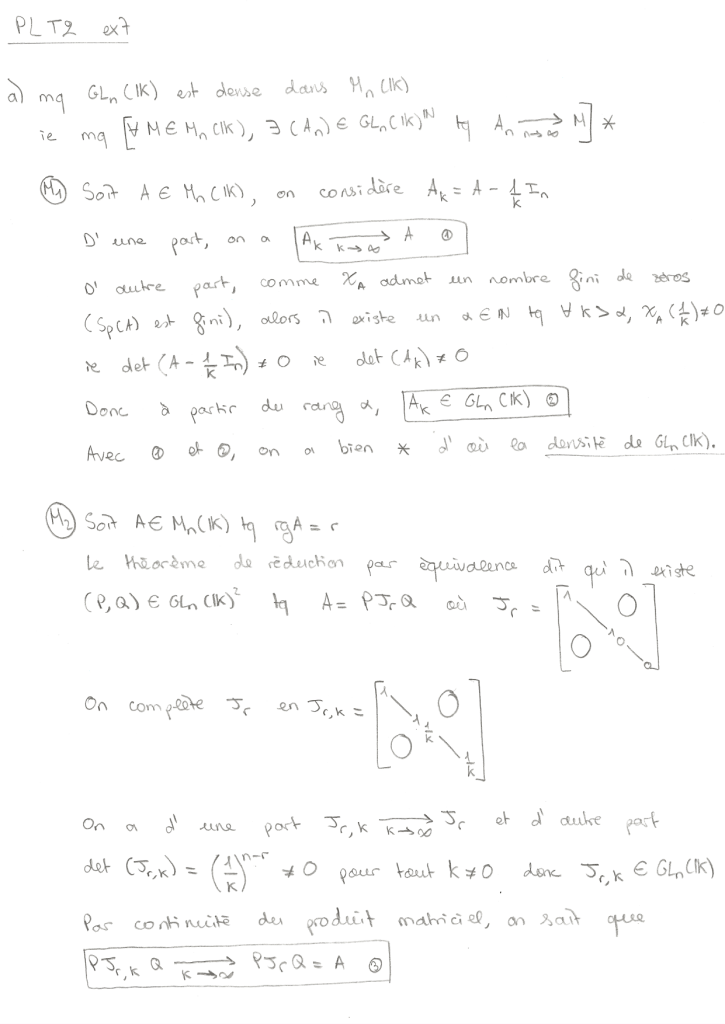 PLT2 ex7
a) mq GLn(IK) est dense dans Mn(IK)
ie mq [∀ M ∈ Mn(IK), ∃ (An) ∈ GLn(IK)^IN tq An →(n→∞) M] *
(M1) Soit A ∈ Mn(IK), on considère Ak = A - 1/k In
D'une part, on a Ak →(k→∞) A ①
D'autre part, comme χA admet un nombre fini de zéros
(Sp(A) est fini), alors il existe un α ∈ IN tq ∀ k > α, χA(1/k) ≠ 0
ie det(A - 1/k In) ≠ 0 ie det(Ak) ≠ 0
Donc à partir du rang α, Ak ∈ GLn(IK) ②
Avec ① et ②, on a bien * d'où la densité de GLn(IK).
(M2) Soit A ∈ Mn(IK) tq rgA = r
Le théorème de réduction par équivalence dit qu'il existe
(P,Q) ∈ GLn(IK)² tq A = PJrQ où Jr = [1 \ 1 0 \ 0, O, O]
On complète Jr en Jr,k = [1 \ 1 1/k \ 1/k, O, O]
On a d'une part Jr,k →(k→∞) Jr et d'autre part
det(Jr,k) = (1/k)^(n-r) ≠ 0 pour tout k ≠ 0 donc Jr,k ∈ GLn(IK)
Par continuité du produit matriciel, on sait que
PJr,k Q →(k→∞) PJrQ = A ③